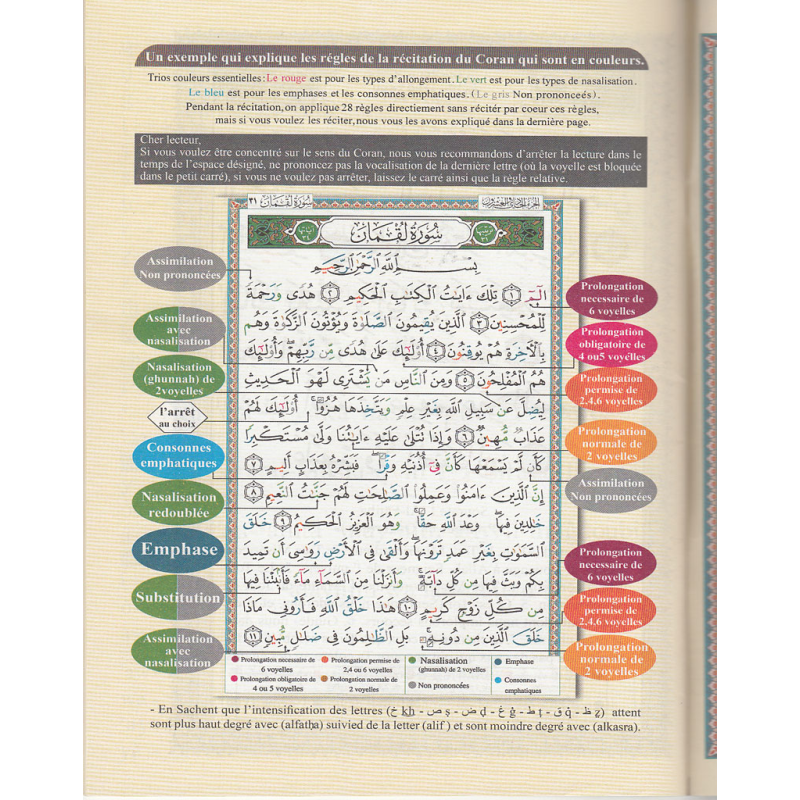 Un exemple qui explique les régles de la récitation du Coran qui sont en couleurs.
Trios couleurs essentielles: Le rouge est pour les types d'allongement. Le vert est pour les types de nasalisation.
Le bleu est pour les emphases et les consonnes emphatiques. (Le gris Non prononceés).
Pendant la récitation, on applique 28 règles directiement sans récité par coeur ces règles,
mais si vous voulez les réciter, nous vous les avons expliqué dans la dernière page.
Cher lecteur,
Si vous voulez être concentré sur le sens du Coran, nous vous recommandons d'arrêter la lecture dans le
temps de l'espace désigné, ne prononcez pas la vocalisation de la dernière lettre (où la voyelle est bloquée
dans le petit carré), si vous ne voulez pas arrêter, laissez le carré ainsi que la règle relative.
سُورَةُ لُقْمَانَ ٣١
سُورَةُ لُقْمَانَ
بِسْمِ ٱللَّهِ ٱلرَّحْمَٰنِ ٱلرَّحِيمِ
الٓمٓ ١ تِلْكَ ءَايَٰتُ ٱلْكِتَٰبِ ٱلْحَكِيمِ ٢ هُدًى وَرَحْمَةً
لِّلْمُحْسِنِينَ ٣ ٱلَّذِينَ يُقِيمُونَ ٱلصَّلَوٰةَ وَيُؤْتُونَ ٱلزَّكَوٰةَ وَهُم
بِٱلْءَاخِرَةِ هُمْ يُوقِنُونَ ٤ أُو۟لَٰٓئِكَ عَلَىٰ هُدًى مِّن رَّبِّهِمْ ۖ وَأُو۟لَٰٓئِكَ
هُمُ ٱلْمُفْلِحُونَ ٥ وَمِنَ ٱلنَّاسِ مَن يَشْتَرِى لَهْوَ ٱلْحَدِيثِ
لِيُضِلَّ عَن سَبِيلِ ٱللَّهِ بِغَيْرِ عِلْمٍ وَيَتَّخِذَهَا هُزُوًا ۚ أُو۟لَٰٓئِكَ لَهُمْ
عَذَابٌ مُّهِينٌ ٦ وَإِذَا تُتْلَىٰ عَلَيْهِ ءَايَٰتُنَا وَلَّىٰ مُسْتَكْبِرًا
كَأَن لَّمْ يَسْمَعْهَا كَأَنَّ فِىٓ أُذُنَيْهِ وَقْرًا ۖ فَبَشِّرْهُ بِعَذَابٍ أَلِيمٍ ٧
إِنَّ ٱلَّذِينَ ءَامَنُوا۟ وَعَمِلُوا۟ ٱلصَّٰلِحَٰتِ لَهُمْ جَنَّٰتُ ٱلنَّعِيمِ ٨
خَٰلِدِينَ فِيهَا ۖ وَعْدَ ٱللَّهِ حَقًّا ۚ وَهُوَ ٱلْعَزِيزُ ٱلْحَكِيمُ ٩ خَلَقَ
ٱلسَّمَٰوَٰتِ بِغَيْرِ عَمَدٍ تَرَوْنَهَا ۖ وَأَلْقَىٰ فِى ٱلْأَرْضِ رَوَٰسِىَ أَن تَمِيدَ
بِكُمْ وَبَثَّ فِيهَا مِن كُلِّ دَآبَّةٍ ۚ وَأَنزَلْنَا مِنَ ٱلسَّمَآءِ مَآءً فَأَنۢبَتْنَا فِيهَا
مِن كُلِّ زَوْجٍ كَرِيمٍ ١٠ هَٰذَا خَلْقُ ٱللَّهِ فَأَرُونِى مَاذَا
خَلَقَ ٱلَّذِينَ مِن دُونِهِۦ ۚ بَلِ ٱلظَّٰلِمُونَ فِى ضَلَٰلٍ مُّبِينٍ ١١
Assimilation
Non prononcées
Assimilation
avec
nasalisation
Nasalisation
(ghunnah) de
2voyelles
l'arrêt
au choix
Consonnes
emphatiques
Nasalisation
redoublée
Emphase
Substitution
Assimilation
avec
nasalisation
Prolongation
necessaire de
6 voyelles
Prolongation
obligatoire de
4 ou5 voyelles
Prolongation
permise de
2,4,6 voyelles
Prolongation
normale de
2 voyelles
Assimilation
Non prononcées
Prolongation
necessaire de
6 voyelles
Prolongation
permise de
2,4,6 voyelles
Prolongation
normale de
2 voyelles
Prolongation necessaire de
6 voyelles
Prolongation permise de
2,4 ou 6 voyelles
Nasalisation
(ghunnah) de 2 voyelles
Emphase
Prolongation obligatoire de
4 ou 5 voyelles
Prolongation normale de
2 voyelles
Non prononcées
Consonnes
emphatiques
- En Sachent que l'intensification des lettres (خ kh - ص ṣ - ض ḍ - غ ġ - ط ṭ - ق q̇ - ظ ẓ) attent
sont plus haut degré avec (alfatḥa) suivied de la letter (alif) et sont moindre degré avec (alkasra).